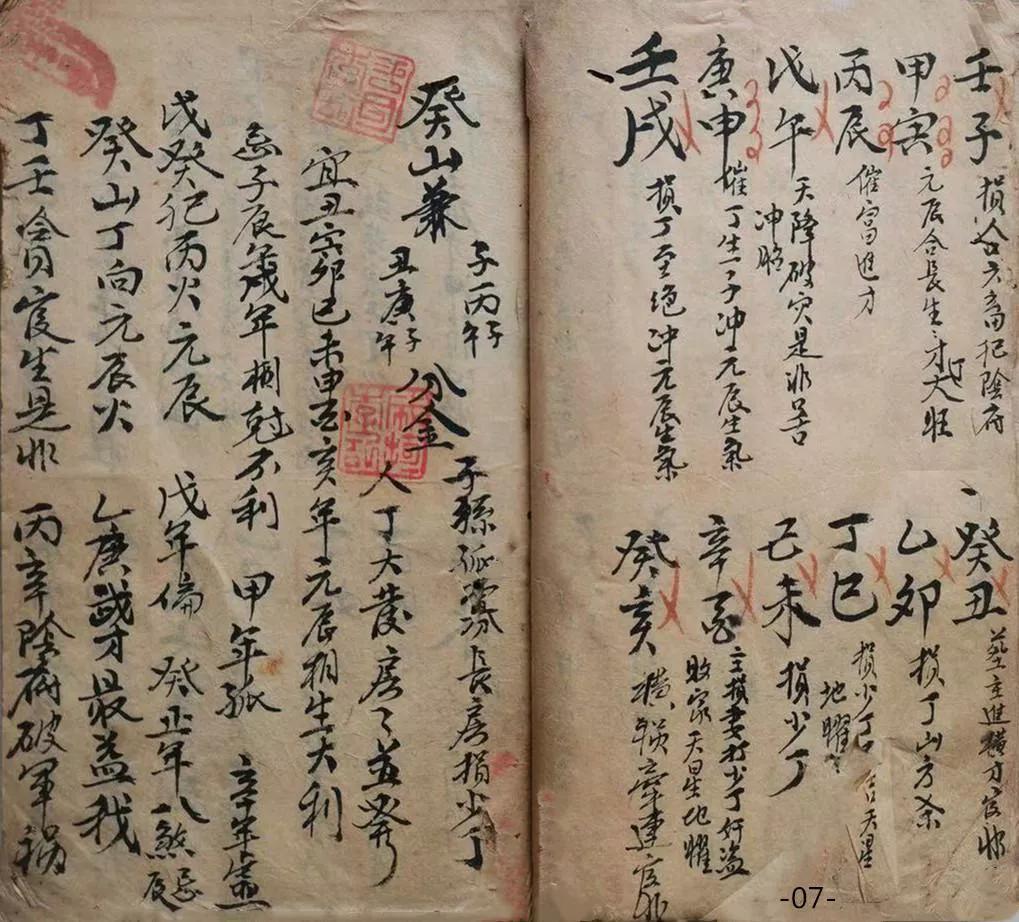 壬子 損人口六畜犯陰府
甲寅 元辰合長生才大旺
丙辰 催富進才
戊午 天降破穴是非苦
冲胎
庚申 催丁生一子冲元辰生氣
壬戌 損丁至绝冲元辰生氣
癸丑 葬主進横才官非
乙卯 損丁山方杀
丁巳 損少丁
地曜 天星
己未 損少丁
辛酉 主損妻打少丁奸盗
敗家天星地曜
癸亥 横 牽連官非
癸山兼
子丙午子
丑庚午子
分金
子孫孤寡長房損少丁
人丁大發房房並發
宜丑寅卯巳未申酉亥年元辰相生大利
忌子辰歲年 尅不利 甲年孤 辛年虚
戊癸犯丙火元辰 戊年偏 癸正年八煞忌辰
癸山丁向元辰火 乙庚武才最益我
丁壬貪官生是非 丙辛陰府破軍禍
-07-